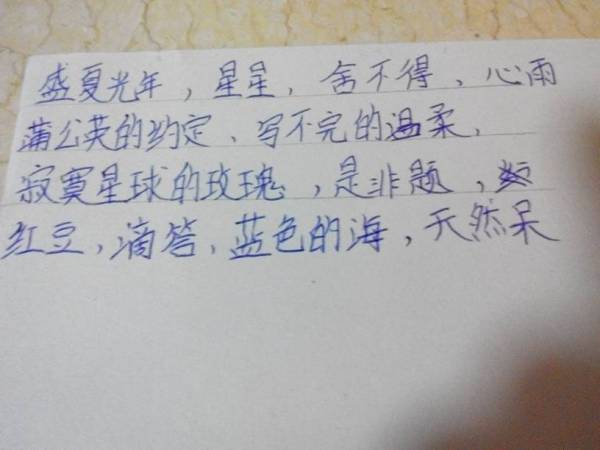 盛夏光年，星星，舍不得、心雨
蒲公英的约定、写不完的温柔、
寂寞星球的玫瑰，是非题，
红豆，滴答，蓝色的海，天然呆